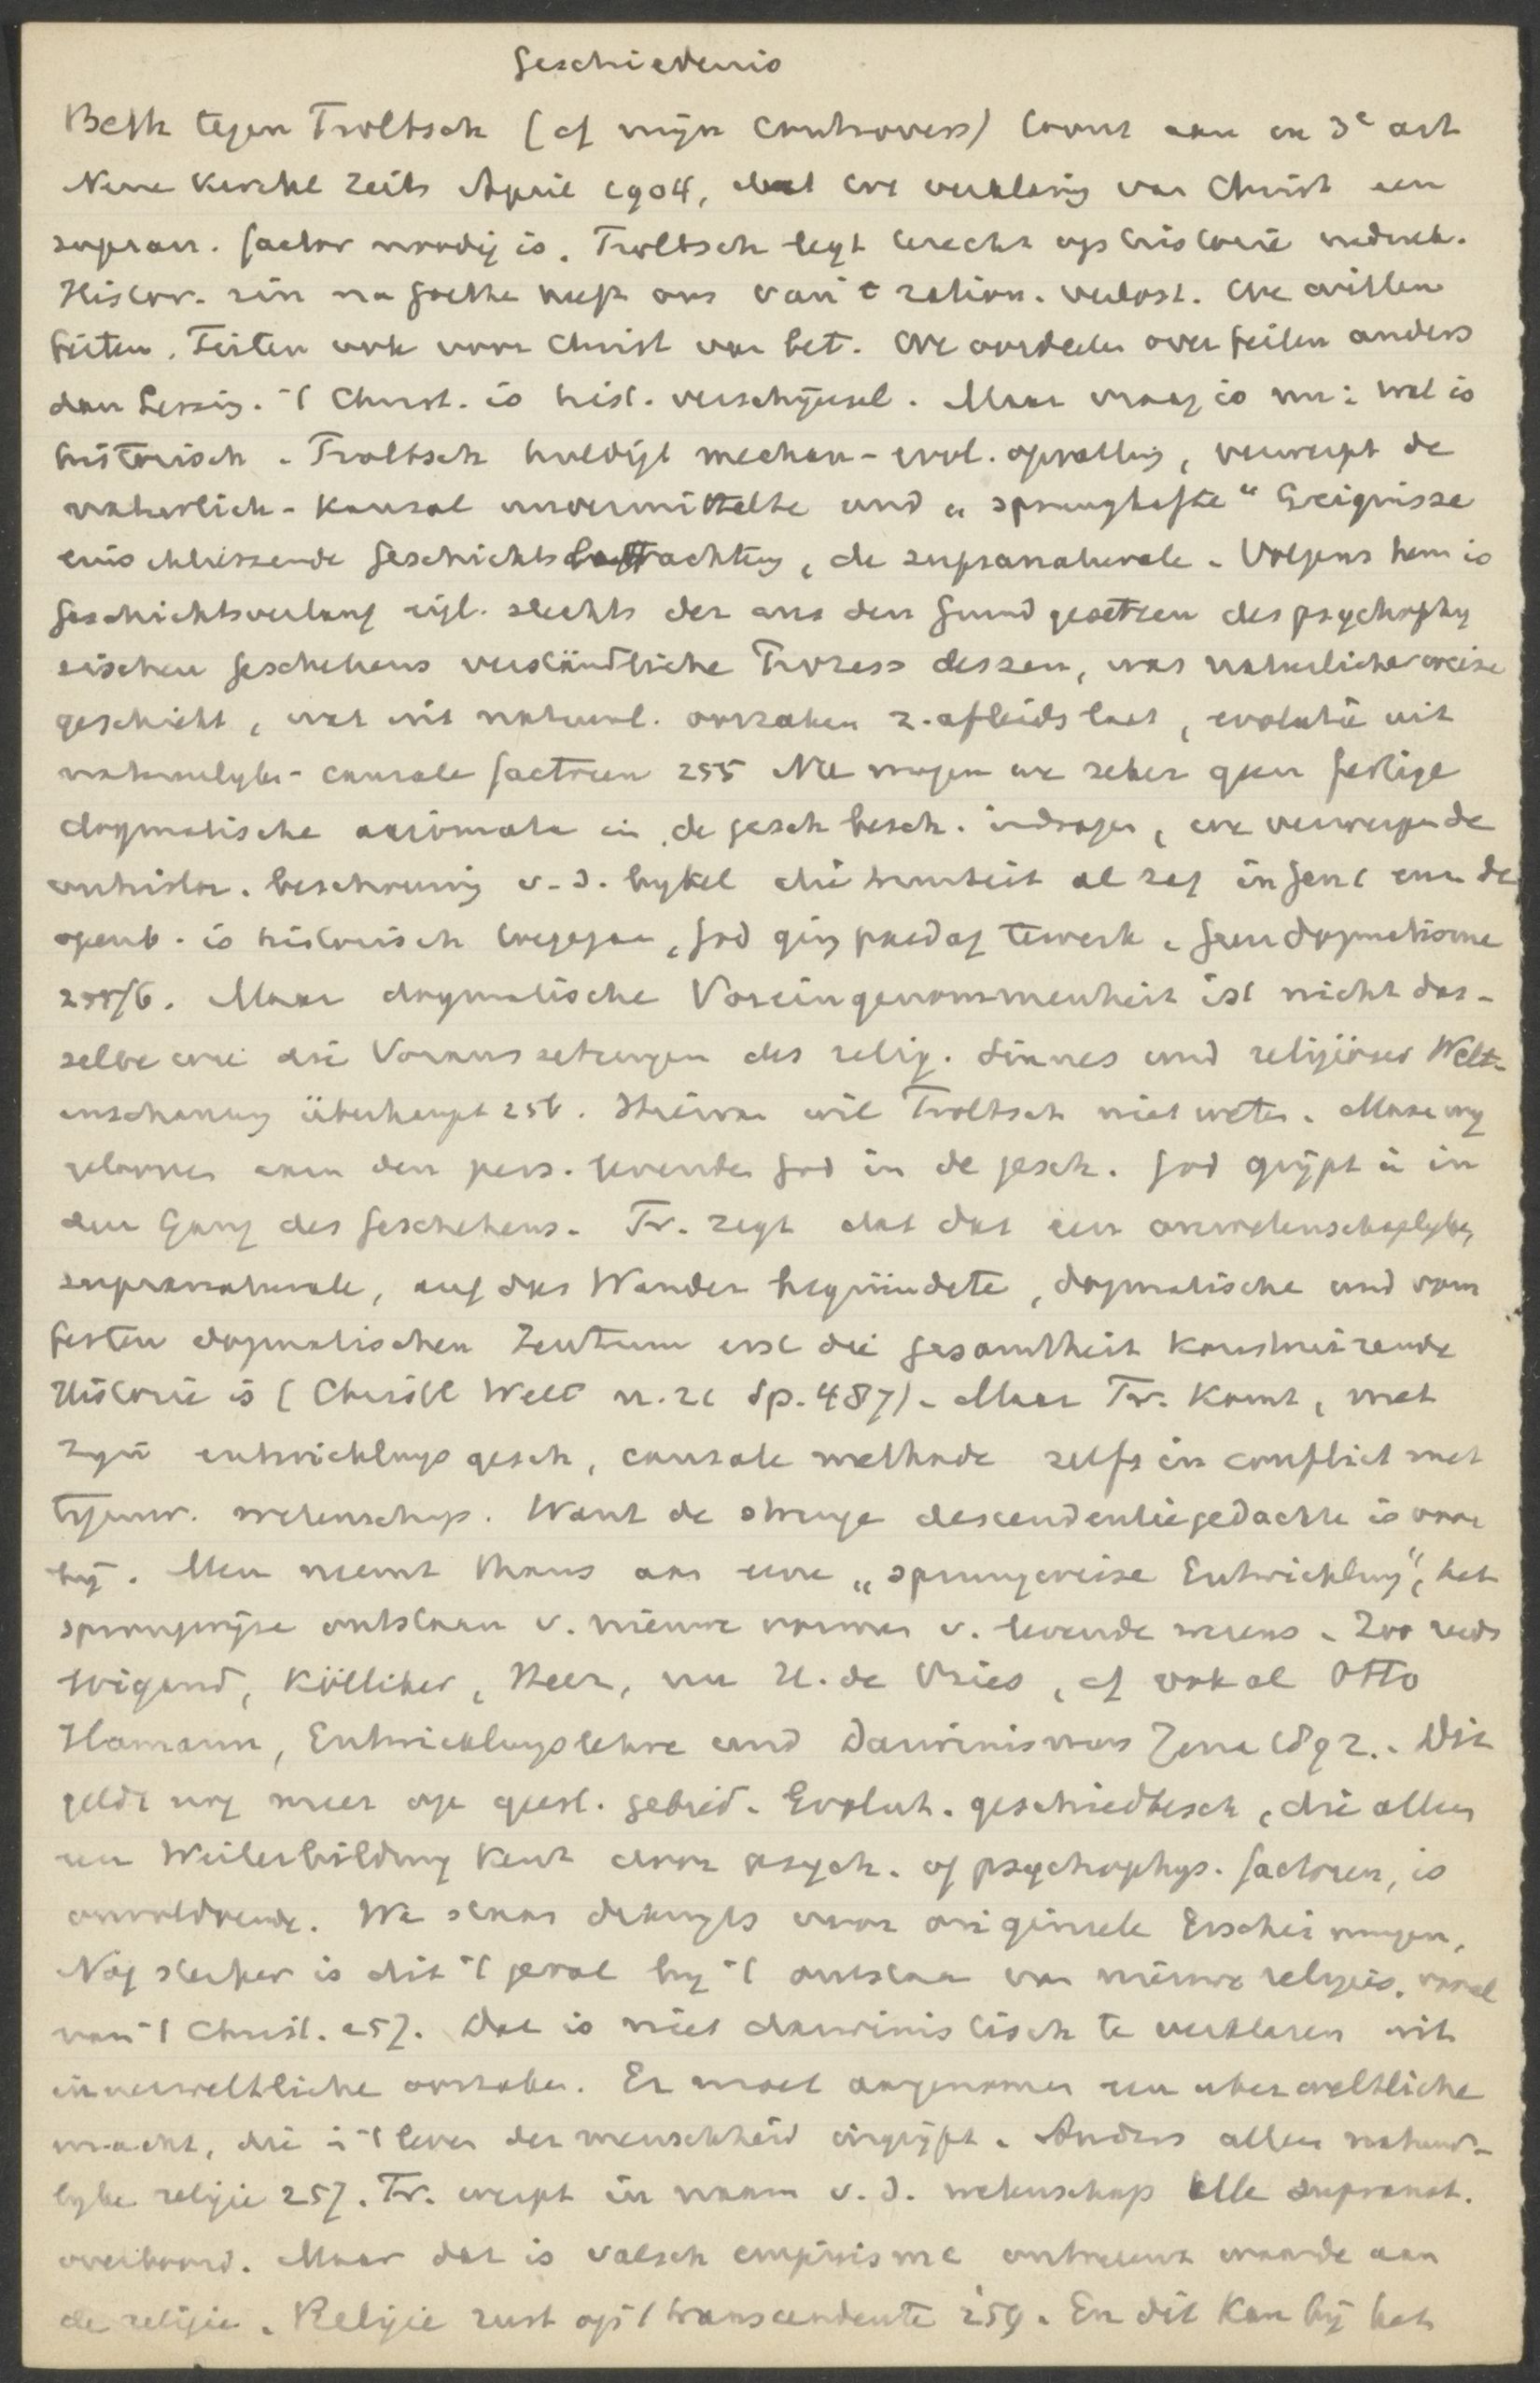 Geschiedenis
Beth tegen Troltsch (cf mijn controvers) toont aan in 3e art
Neue Kirchl Zeits April 1904, dat tot verklaring van Christ een
supran. factor noodig is. Troltsch legt terecht op historie nadruk.
Histor. zin na Goethe heeft ons van 't ration. verlost. We willen
feiten. Feiten ook voor Christ van bet. We oordeelen over feiten anders
dan Lessing. 't Christ. is hist. verschijnsel. Maar vraag is nu: wat is
historisch. Troltsch huldigt mechan-evol. opvatting, verwerpt de
naturlich-kausal unvermittelte und „sprunghafte“ Ereignisse
einschliessende Geschichtsbetrachtung, de supranaturale. Volgens hem is
Geschichtsverlauf eigl. slechts der aus den Grundgesetzen des psychophy
sischen Geschehens verständliche Prozess dessen, was naturlicherweise
geschieht, wat uit natuurl. oorzaken z. afleiden laat, evolutie uit
natuurlyke-causale factoren 255 Nu mogen we zeker geen fertige
dogmatische axiomata in de gesch besch. indragen, we verwerpen de
onhistor. beschouwing v. d. bybel die triniteit al zag in Gen 1 en de
openb. is historisch toegegaan, God ging paedag te werk. Geen dogmatisme
255/6. Maar dogmatische Voreingenommenheit ist nicht das-
selbe wie die Voraussetzungen des relig. Sinnes und religiöser Welt-
anschauung überhaupt 256. Hiervan wil Troltsch niet weten. Maar wy
gelooven aan den pers. levenden God in de gesch. God grijpt in in
den Gang des Geschehens. Tr. zegt dat dat een onwetenschaplyke,
supranaturale, auf das Wunder begründete, dogmatische und vom
festen dogmatischen Zentrum erst die Gesamtheit konstruirende
Historie is (Christl Welt n. 21 Sp. 487). Maar Tr. komt, met
zyn entwicklungsgesch, causale methode zelfs in conflict met
tegenw. wetenschap. Want de strenge descendentiegedachte is voor
bij. Men neemt thans aan eene „sprungweise Entwicklung“, het
sprongwijze ontstaan v. nieuwe vormen v. levende wezens. Zoo reeds
Wigand, Kölliker, Heer, nu H. de Vries, cf ook al Otto
Hamann, Entwicklungslehre und Darwinismus Jena 1892. Dit
geldt nog meer op geest. gebied. Evolut. geschiedbesch, die alleen
een Weiterbildung kent door psych. of psychophys. factoren, is
onvoldoende. We staan dikwyls voor originele Erscheinungen.
Nog sterker is dit 't geval by 't ontstaan van nieuwe religies, vooral
van 't Christ. 257. Dat is niet darwinistisch te verklaren uit
innerweltliche oorzaken. Er moet aangenomen een uberweltliche
macht, die in 't leven der menschheid ingrijpt. Anders alleen natuur-
lyke religie 257. Tr. werpt in naam v. d. wetenschap alle supranat.
overboord. Maar dat is valsch empirisme ontneemt waarde aan
de religie. Religie rust op 't transcendente 259. En dit kan bij het